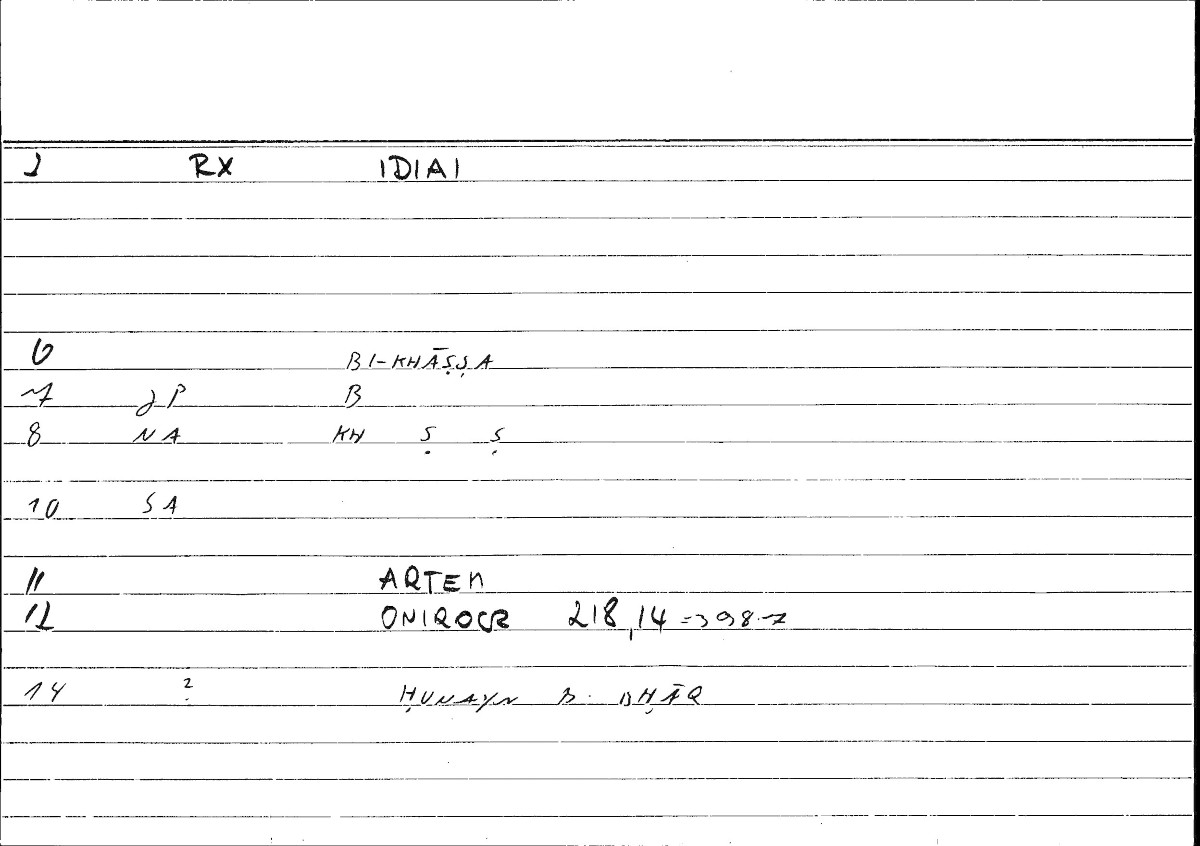 2 RX IDIAI
6 BI-KHĀṢṢA
7 JP B
8 NA KH Ṣ Ṣ
10 SA
11 ARTEM
12 ONIROCR 218,14 = 398.7
14 ? ḤUNAYN B. ISḤĀQ